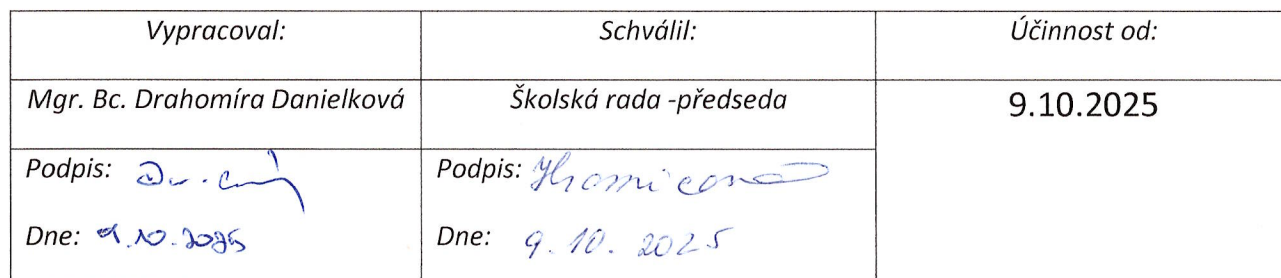 Vypracoval: Schválil: Účinnost od:
Mgr. Bc. Drahomíra Danielková Školská rada -předseda 9.10.2025
Podpis: Podpis:
Dne: 9.10.2025 Dne: 9.10.2025